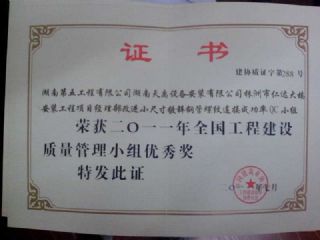 证书
建协质证字第288号
湖南第五工程有限公司湖南天禹设备安装有限公司株洲市仁达大楼
安装工程项目经理部改进小尺寸镀锌钢管螺纹连接成功率QC小组
荣获二〇一一年全国工程建设
质量管理小组优秀奖
特发此证
二〇一一年七月